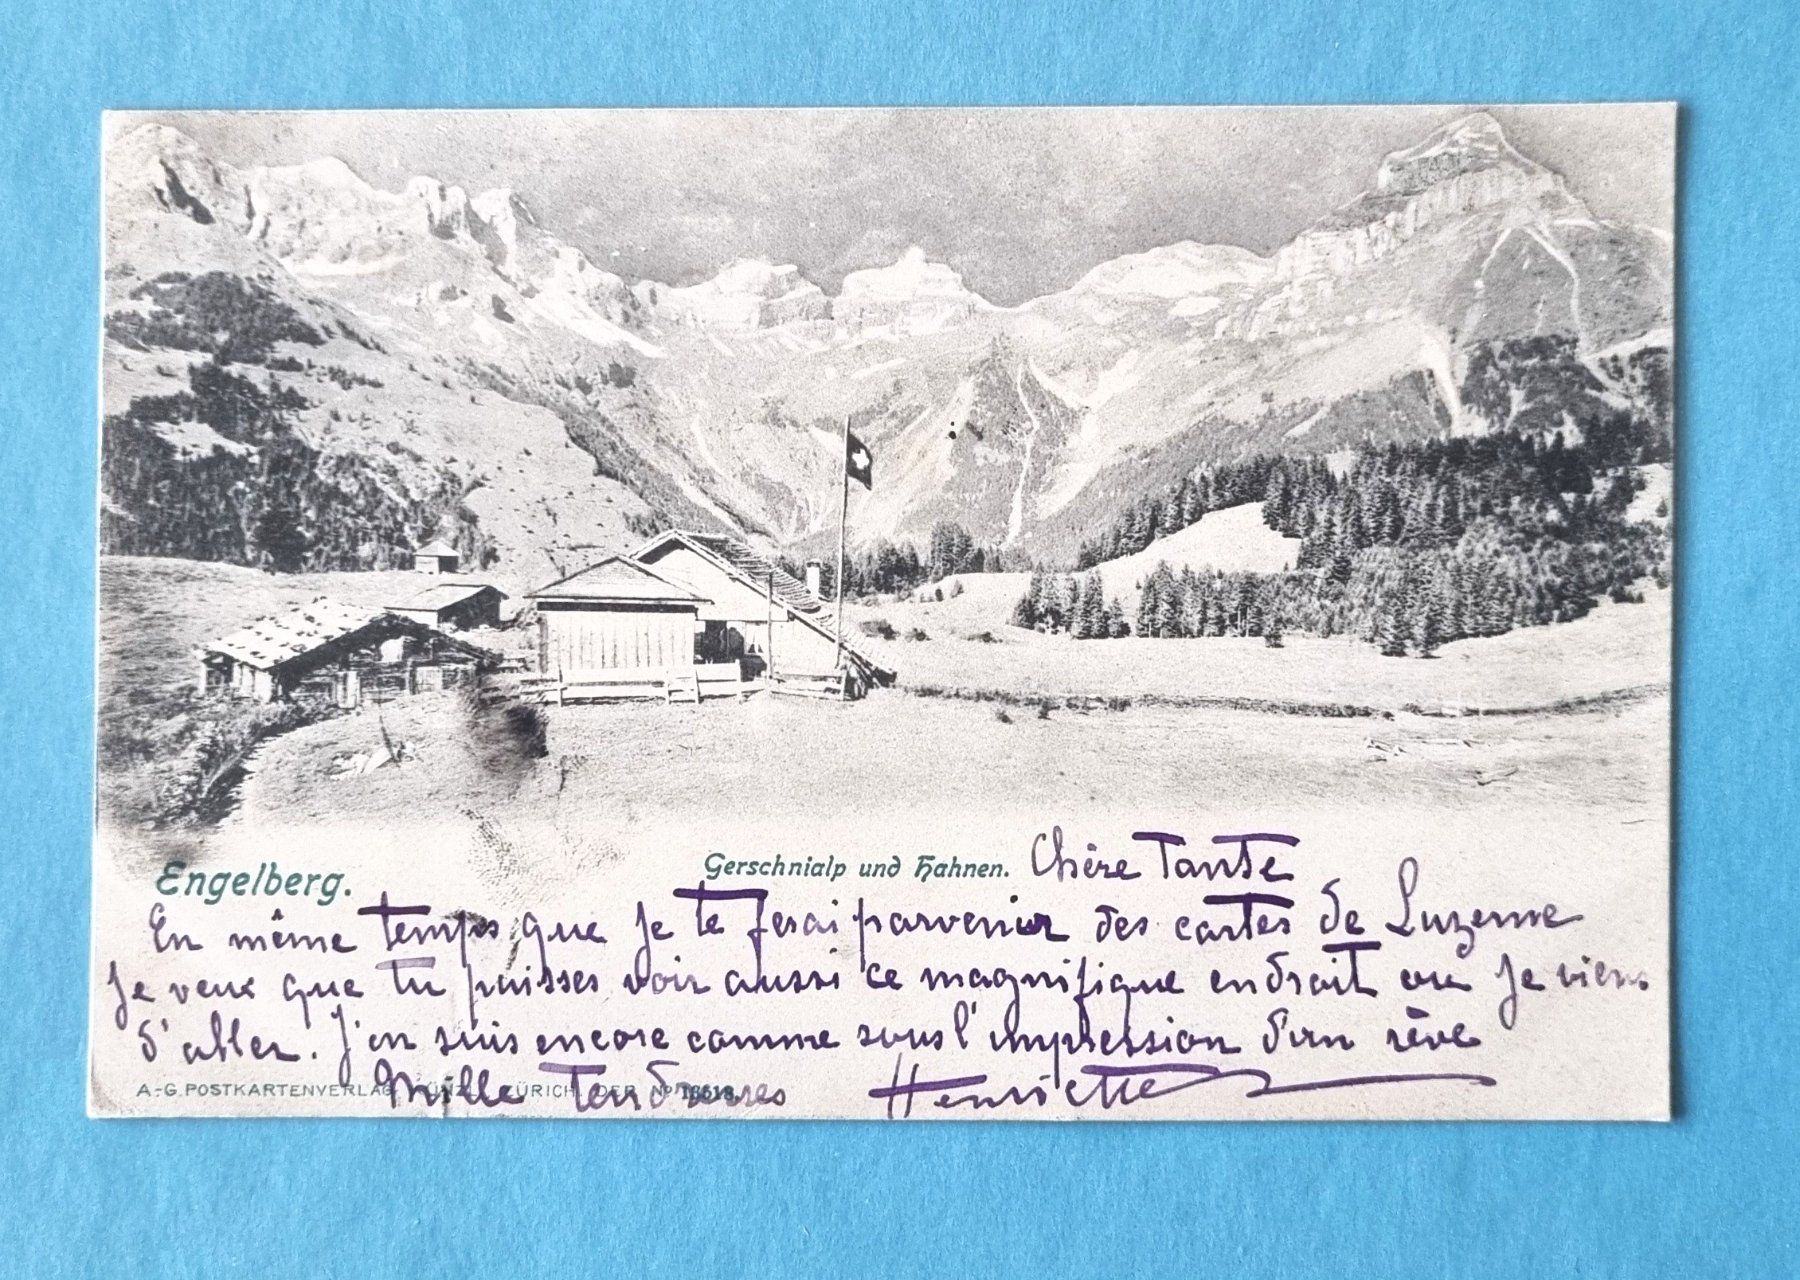 Engelberg.
Gerschnialp und Hahnen.
Chère Tante
En même temps que je te ferai parvenir des cartes de Luzerne
je veux que tu puisses voir aussi ce magnifique endroit ou je viens
d'aller. J'en suis encore comme sous l'impression d'un rêve
Mille Tendresses Henriette
A.-G. POSTKARTENVERLAG KÜNZLI, ZÜRICH. DEP. No 18618.